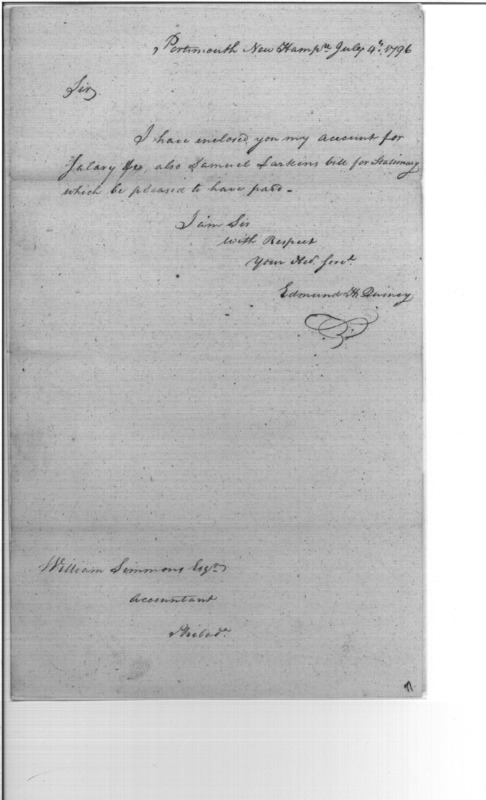 Portsmouth New Hampre. July 4th. 1796
Sir,
I have enclosed you my account for
Salary &c, also Samuel Larkins bill for Stationary
which be pleased to have paid -
I am Sir
with Respect
Your Hbl. Servt.
Edmund H. Quincy
William Simmons Esqr.
Accountant
Philada.